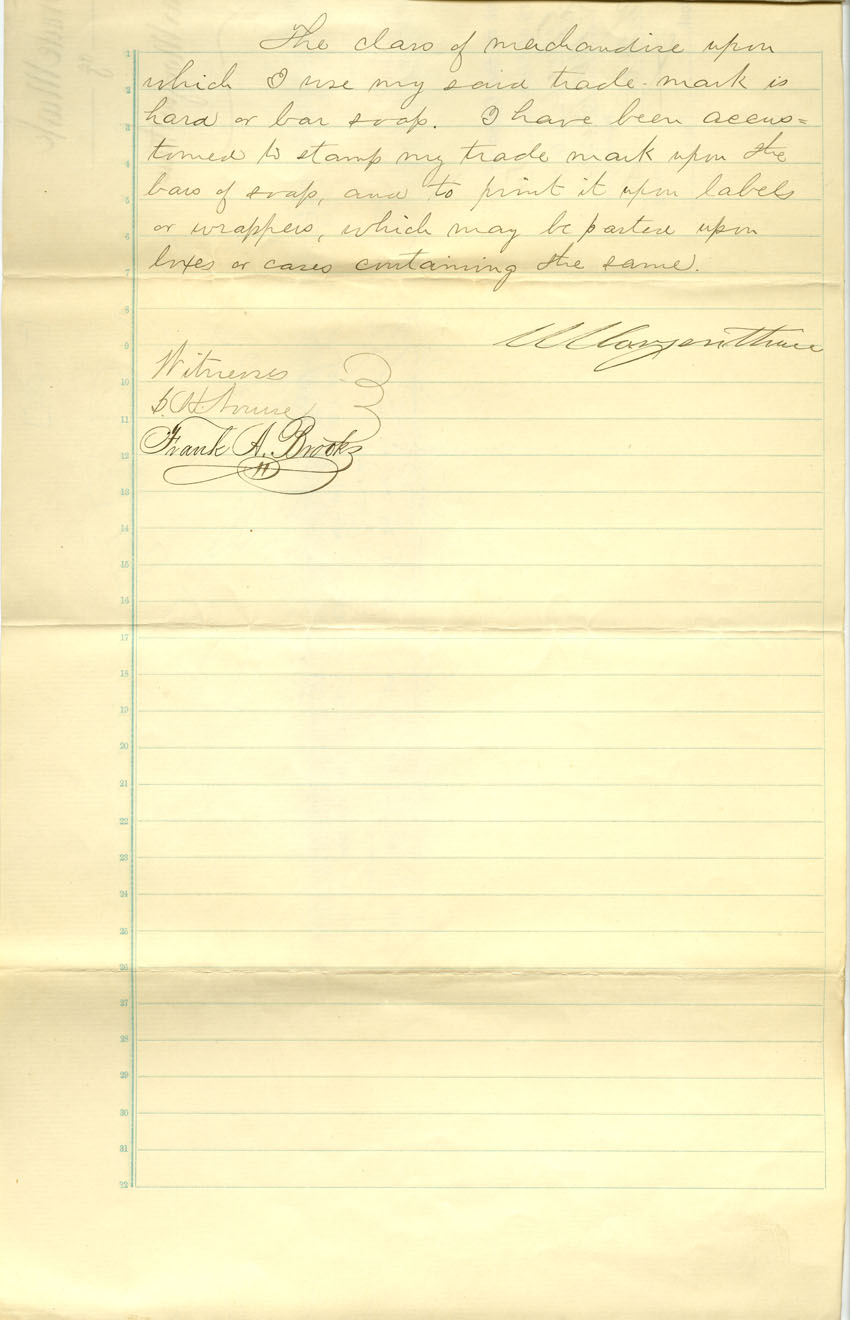 The class of merchandise upon
which I use my said trade-mark is
hard or bar soap. I have been accus=
tomed to stamp my trade mark upon the
bars of soap, and to print it upon labels
or wrappers, which may be pasted upon
boxes or cases containing the same.
Morgenthau
Witnesses
Frank A. Brooks
1
2
3
4
5
6
7
8
9
10
11
12
13
14
15
16
17
18
19
20
21
22
23
24
25
26
27
28
29
30
31
32